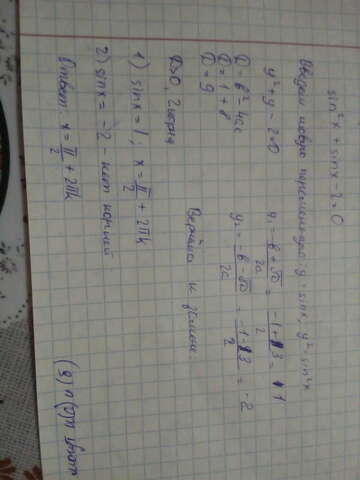 sin²x + sinx - 2 = 0
Введем новую переменную: y = sinx, y² = sin²x
y² + y - 2 = 0
D = b² - 4ac
D = 1 + 8
D = 9
D>0, 2 корня
y₁ = -b + √D / 2a = -1 + 3 / 2 = 1
y₂ = -b - √D / 2a = -1 - 3 / 2 = -2
Вернёмся к замене
1) sinx = 1; x = π/2 + 2πk
2) sinx = -2 - нет корней
Ответ: x = π/2 + 2πk